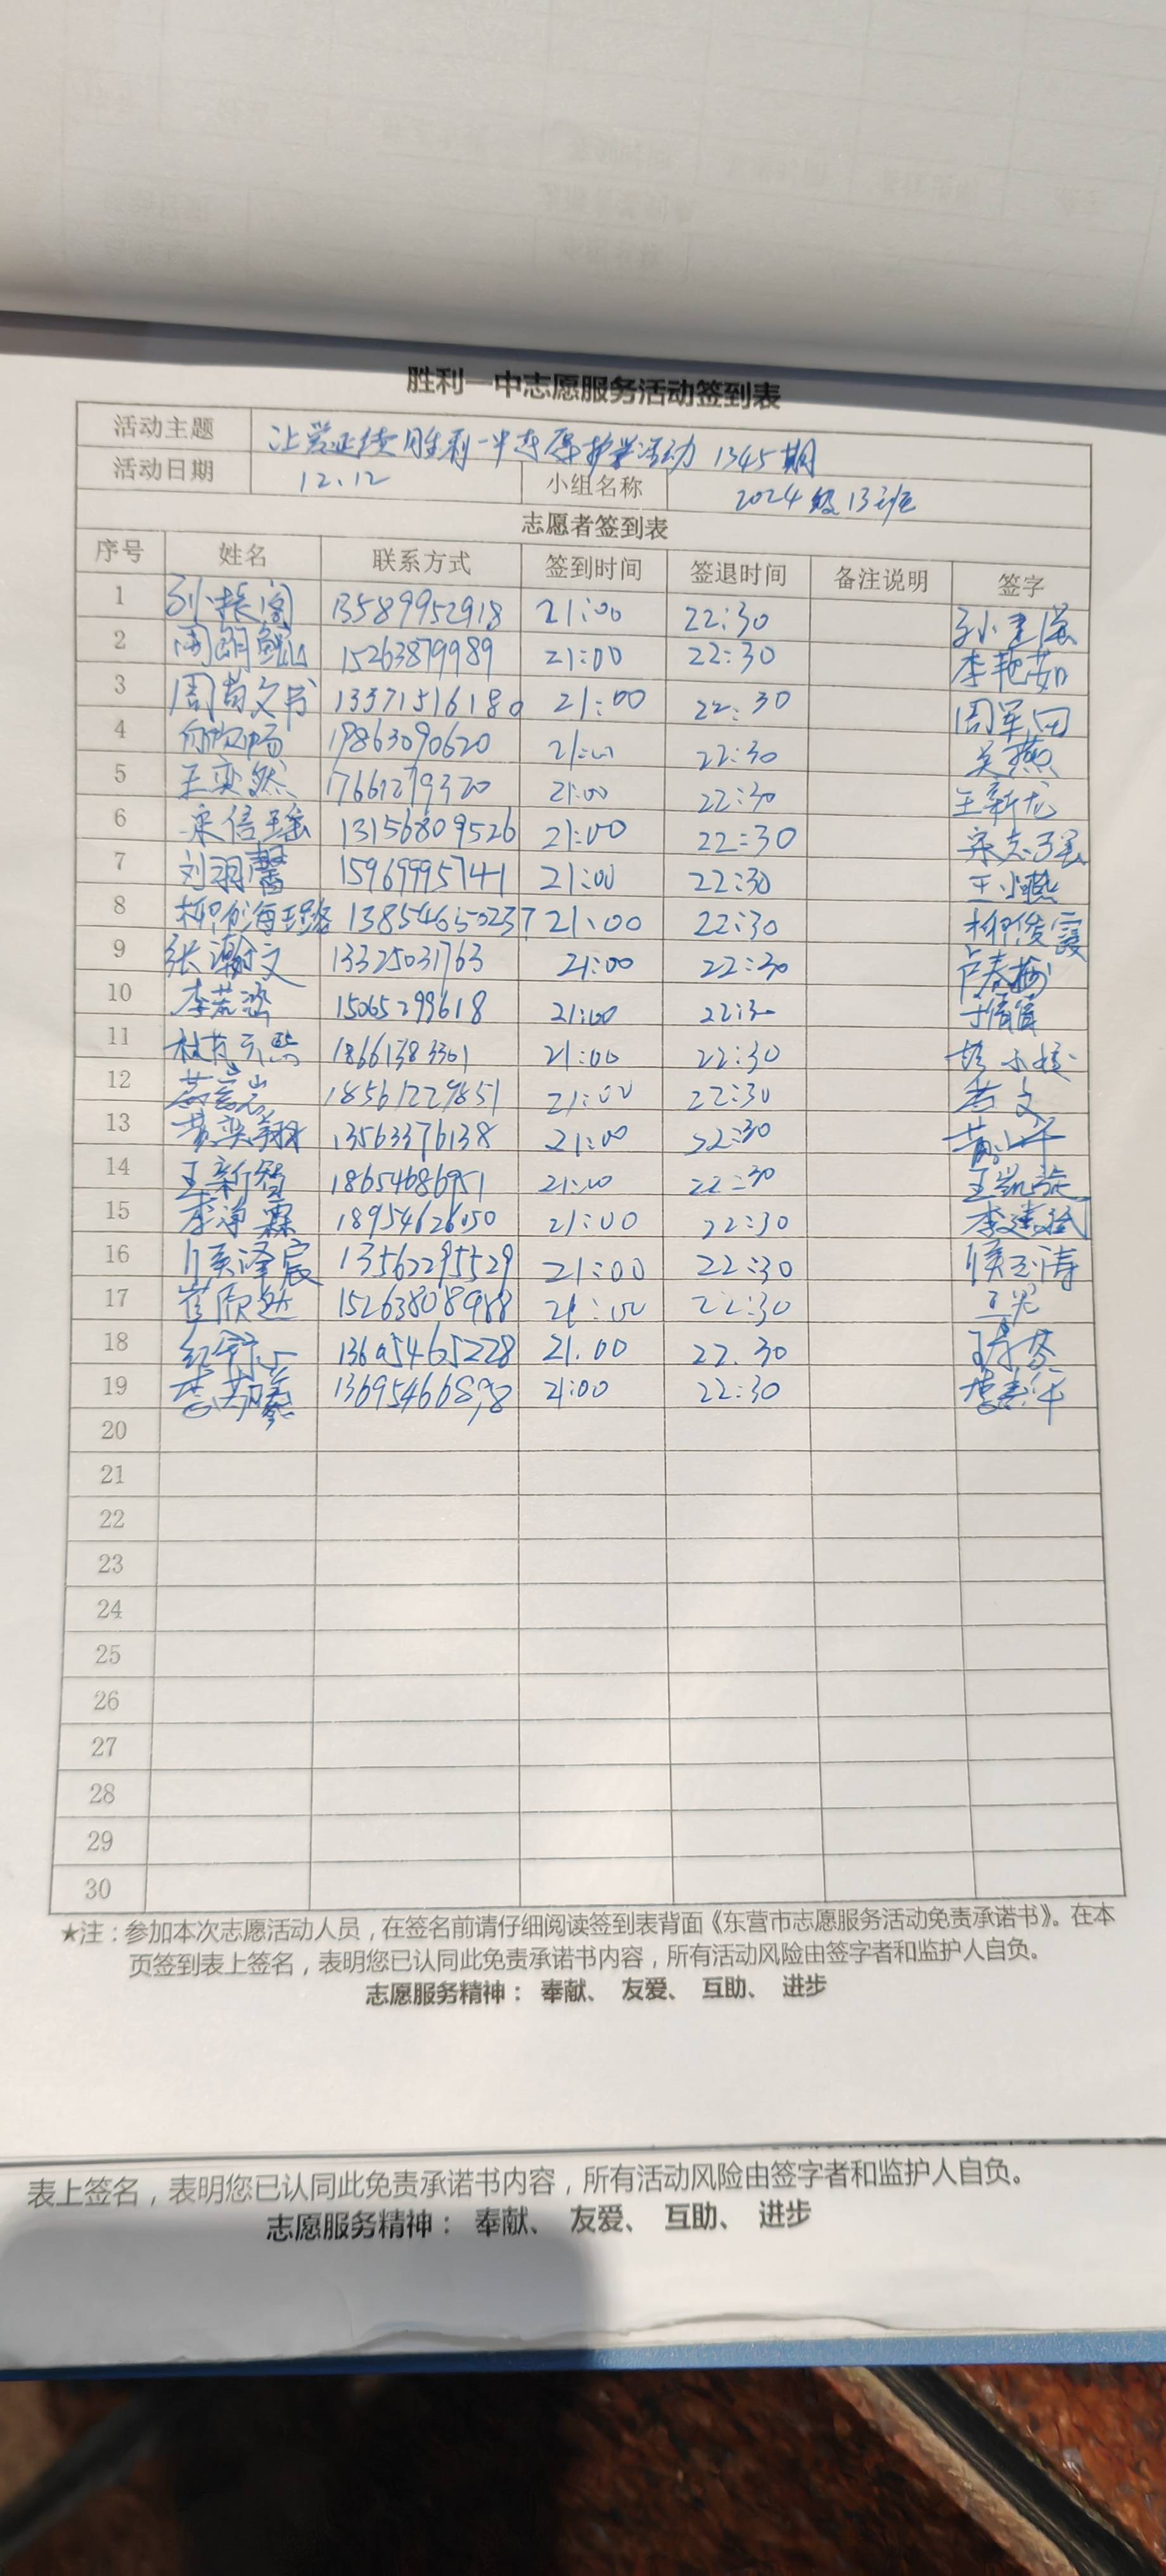 胜利一中志愿服务活动签到表
活动主题 让爱延续胜利一中志愿护学活动 1345期
活动日期 12.12 小组名称 2024级13班
志愿者签到表
序号 姓名 联系方式 签到时间 签退时间 备注说明 签字
1 13589952918 21:00 22:30
2 15263879989 21:00 22:30 李艳茹
3 周尚文书 13371516180 21:00 22:30 周军田
4 19863090620 22:30 吴燕
5 王奕然 17661279320 21:00 22:30 王新龙
6 宋信瑶 13156809526 21:00 22:30
7 刘羽馨 15969995741 21:00 22:30 王小燕
8 13854650237 21:00 22:30 柳俊霞
9 张瀚文 13325031763 21:00 22:30
10 李茗涵 15065299618 21:00
11 18661383301 21:00 22:30
12 18561229851 21:00 22:30
13 黄奕翔 13563376138 21:00 22:30
14 王新智 18654686951 22:30 王凯旋
15 18954626050 21:00 22:30
16 侯泽宸 13562295529 21:00 22:30 侯玉涛
17 崔欣然 15263808988 21:00 22:30
18 13605465228 21.00 22.30
19 21:00 22:30
20
21
22
23
24
25
26
27
28
29
30
★注：参加本次志愿活动人员，在签名前请仔细阅读签到表背面《东营市志愿服务活动免责承诺书》。在本
页签到表上签名，表明您已认同此免责承诺书内容，所有活动风险由签字者和监护人自负。
志愿服务精神： 奉献、 友爱、 互助、 进步
表上签名，表明您已认同此免责承诺书内容，所有活动风险由签字者和监护人自负。
志愿服务精神： 奉献、 友爱、 互助、 进步